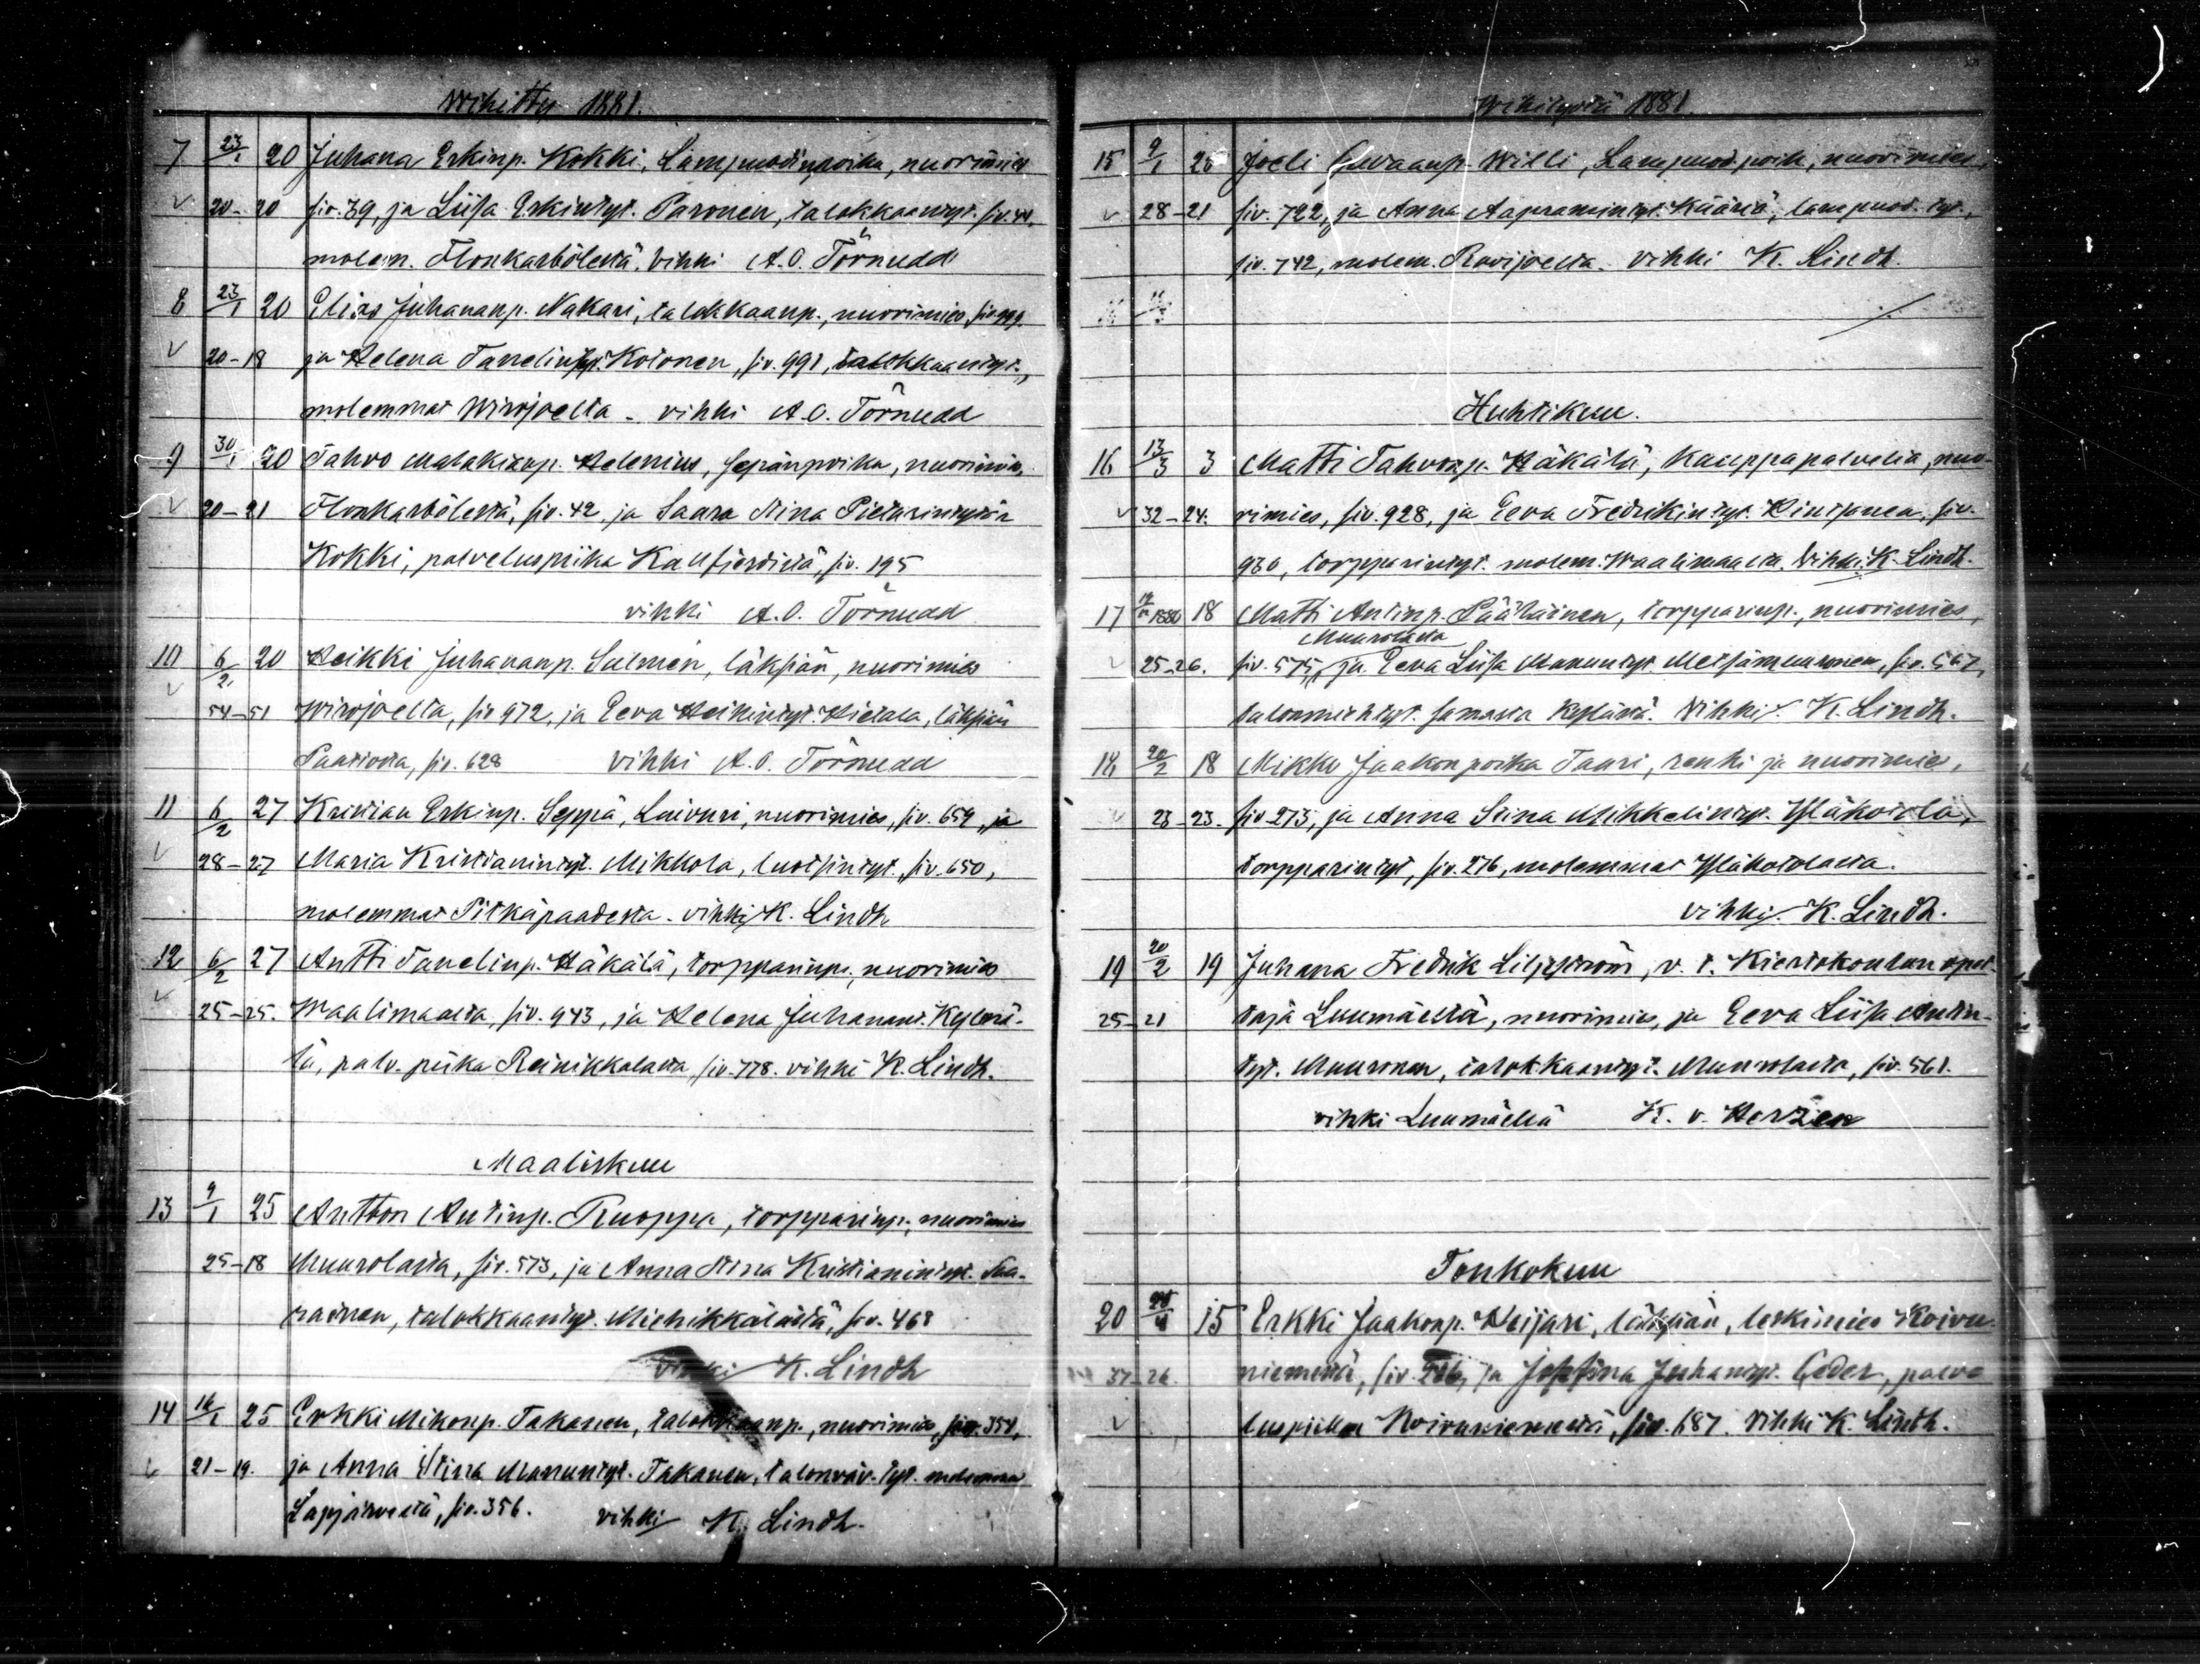 Wihitty 1881.
7 23/1 20 Juhana Erkinp. Kokki, Lampuodinpoika, nuorimies
20-20 siv. 39, ja Liisa Erkintyt. Paronen, talokkaantyt. siv. 44,
molem. Flonkarbölestä. Vihki A. O. Törnudd
8 23/1 20 Elias Juhananp. Nakari, talokkaanp., nuorimies, siv.
20-18 ja Helena Tanelintyt. Kotonen, siv. 991, talokkaantyt.,
molemmat Wirojoelta - vihki A. O. Törnudd
9 30/1 20 Tahvo Malakianp. Helenius, sepänpoika, nuorimies,
20-21 Flonkarbölestä, siv. 42, ja Saara Stina Pietarintytär
Kokki, palveluspiika Kallfjärdistä, siv. 195
vihki A. O. Törnudd
10 6/2 20 Heikki Juhananp. Salmén, läksiän, nuorimies
54-51 Wirojoelta, siv 972, ja Eeva Heikintyt. Hietala, läksiän
siv. 628 vihki A. O. Törnudd
11 6/2 27 Kristian Erkinp. Seppä, Laivuri, nuorimies, siv. 654, ja
28-27 Maria Kristianintyt. Mikkola, luotsintyt. siv. 650,
molemmat Pitkäpaadesta. vihki K. Lindh
12 6/2 27 Antti Tanelinp. Häkälä, torpparinp., nuorimies
25-25. Waalimaalta, siv. 943, ja Helena Juhanant. Kylmä-
lä, palv. piika Reinikkalasta, siv. 778. vihki K. Lindh.
Maaliskuu
13 9/1 25 Anthon Antinp. Ruoppa, torpparinp., nuorimies
25-18 Muurolasta, siv. 573, ja Anna Stina Kristianintyt. Saa-
rainen, talokkaantyt. Miehikkälästä, siv. 468
vihki K. Lindh
14 16/1 25 Erkki Mikonp. Takanen, talokkaanp., nuorimies, siv. 354,
21-19. ja Anna Stina Manuntyt. Takanen, talonväv. tyt. molemmat
Lapjärveltä, siv. 356. vihki K. Lindh.
Wihityttä 1881.
15 9/1 25 Joeli Willi, Lampuod. poik, nuorimies,
28-21 siv. 722, ja Anna Aapramintyt. Kääriä, lampuod. tyt.,
siv. 742, molem. Ravijoelta. vihki K. Lindh.
Huhtikuu.
16 13/3 3 Matti Tahvonp. Häkälä, Kauppapalvelia, nuo-
32-24. rimies, siv. 928, ja Eeva Fredrikintyt. Kintsanen, siv.
930, torpparintyt. molem. Waalimaalta. Vihki K. Lindh.
17 1880 18 Matti Antinp. Päätäinen, torpparinp., nuorimies,
Muurolasta
25-26. siv. 575, ja Eeva Liisa Manuntyt. Metsämuuronen, siv. 567,
talonmiehtyt. samasta kylästä. Vihki K. Lindh.
18 20/2 18 Mikko Jaakonpoika Tauri, renki ja nuorimies,
23-23. siv 273, ja Anna Stina Mikkelintyt. Yläkotola,
torpparintyt, siv. 276, molemmat Yläkotolasta.
vihki K. Lindh.
19 20/2 19 Juhana Fredrik Liljeström, v. t. Kiertokoulun opet-
25-21 taja Luumäeltä, nuorimies, ja Eeva Liisa Antin-
tyt. Muuronen, talokkaantyt. Muurolasta, siv. 561.
vihki Luumäellä K. v. Hertzen
Toukokuu
20 15 Erkki Jaakonp. Heijari, läksiän, leskimies Koivu-
37-26. niemeltä, siv. ja Josefina Juhantyt. Ceder, palve
luspiika Koivuniemeltä, siv. 687. Vihki K. Lindh.